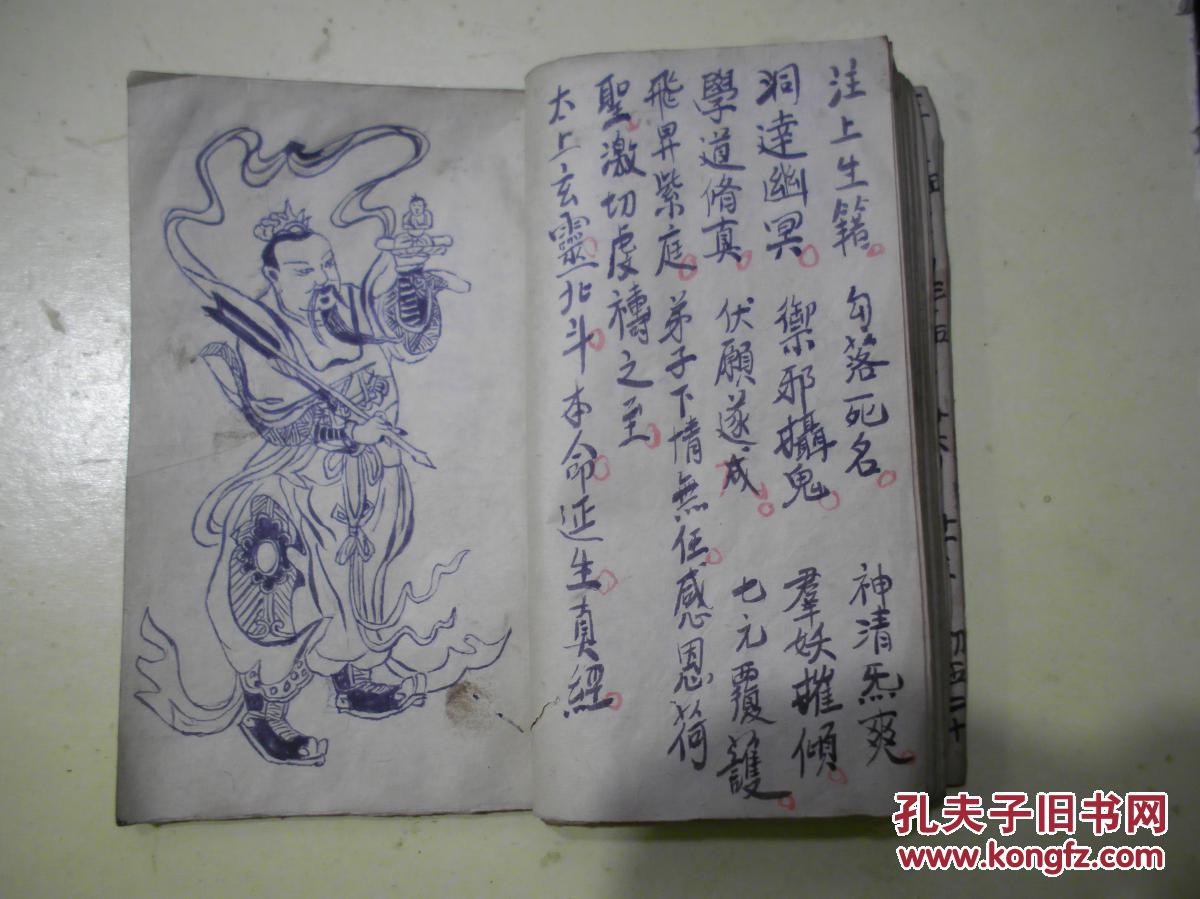 注上生籍 勾落死名 神清炁爽
洞達幽冥 禦邪攝鬼 羣妖摧傾
學道脩真 伏願遂成 七元覆護
飛昇紫庭 弟子下情無任感恩荷
聖激切虔禱之至
太上玄靈北斗本命延生真經
孔夫子旧书网
www.kongfz.com